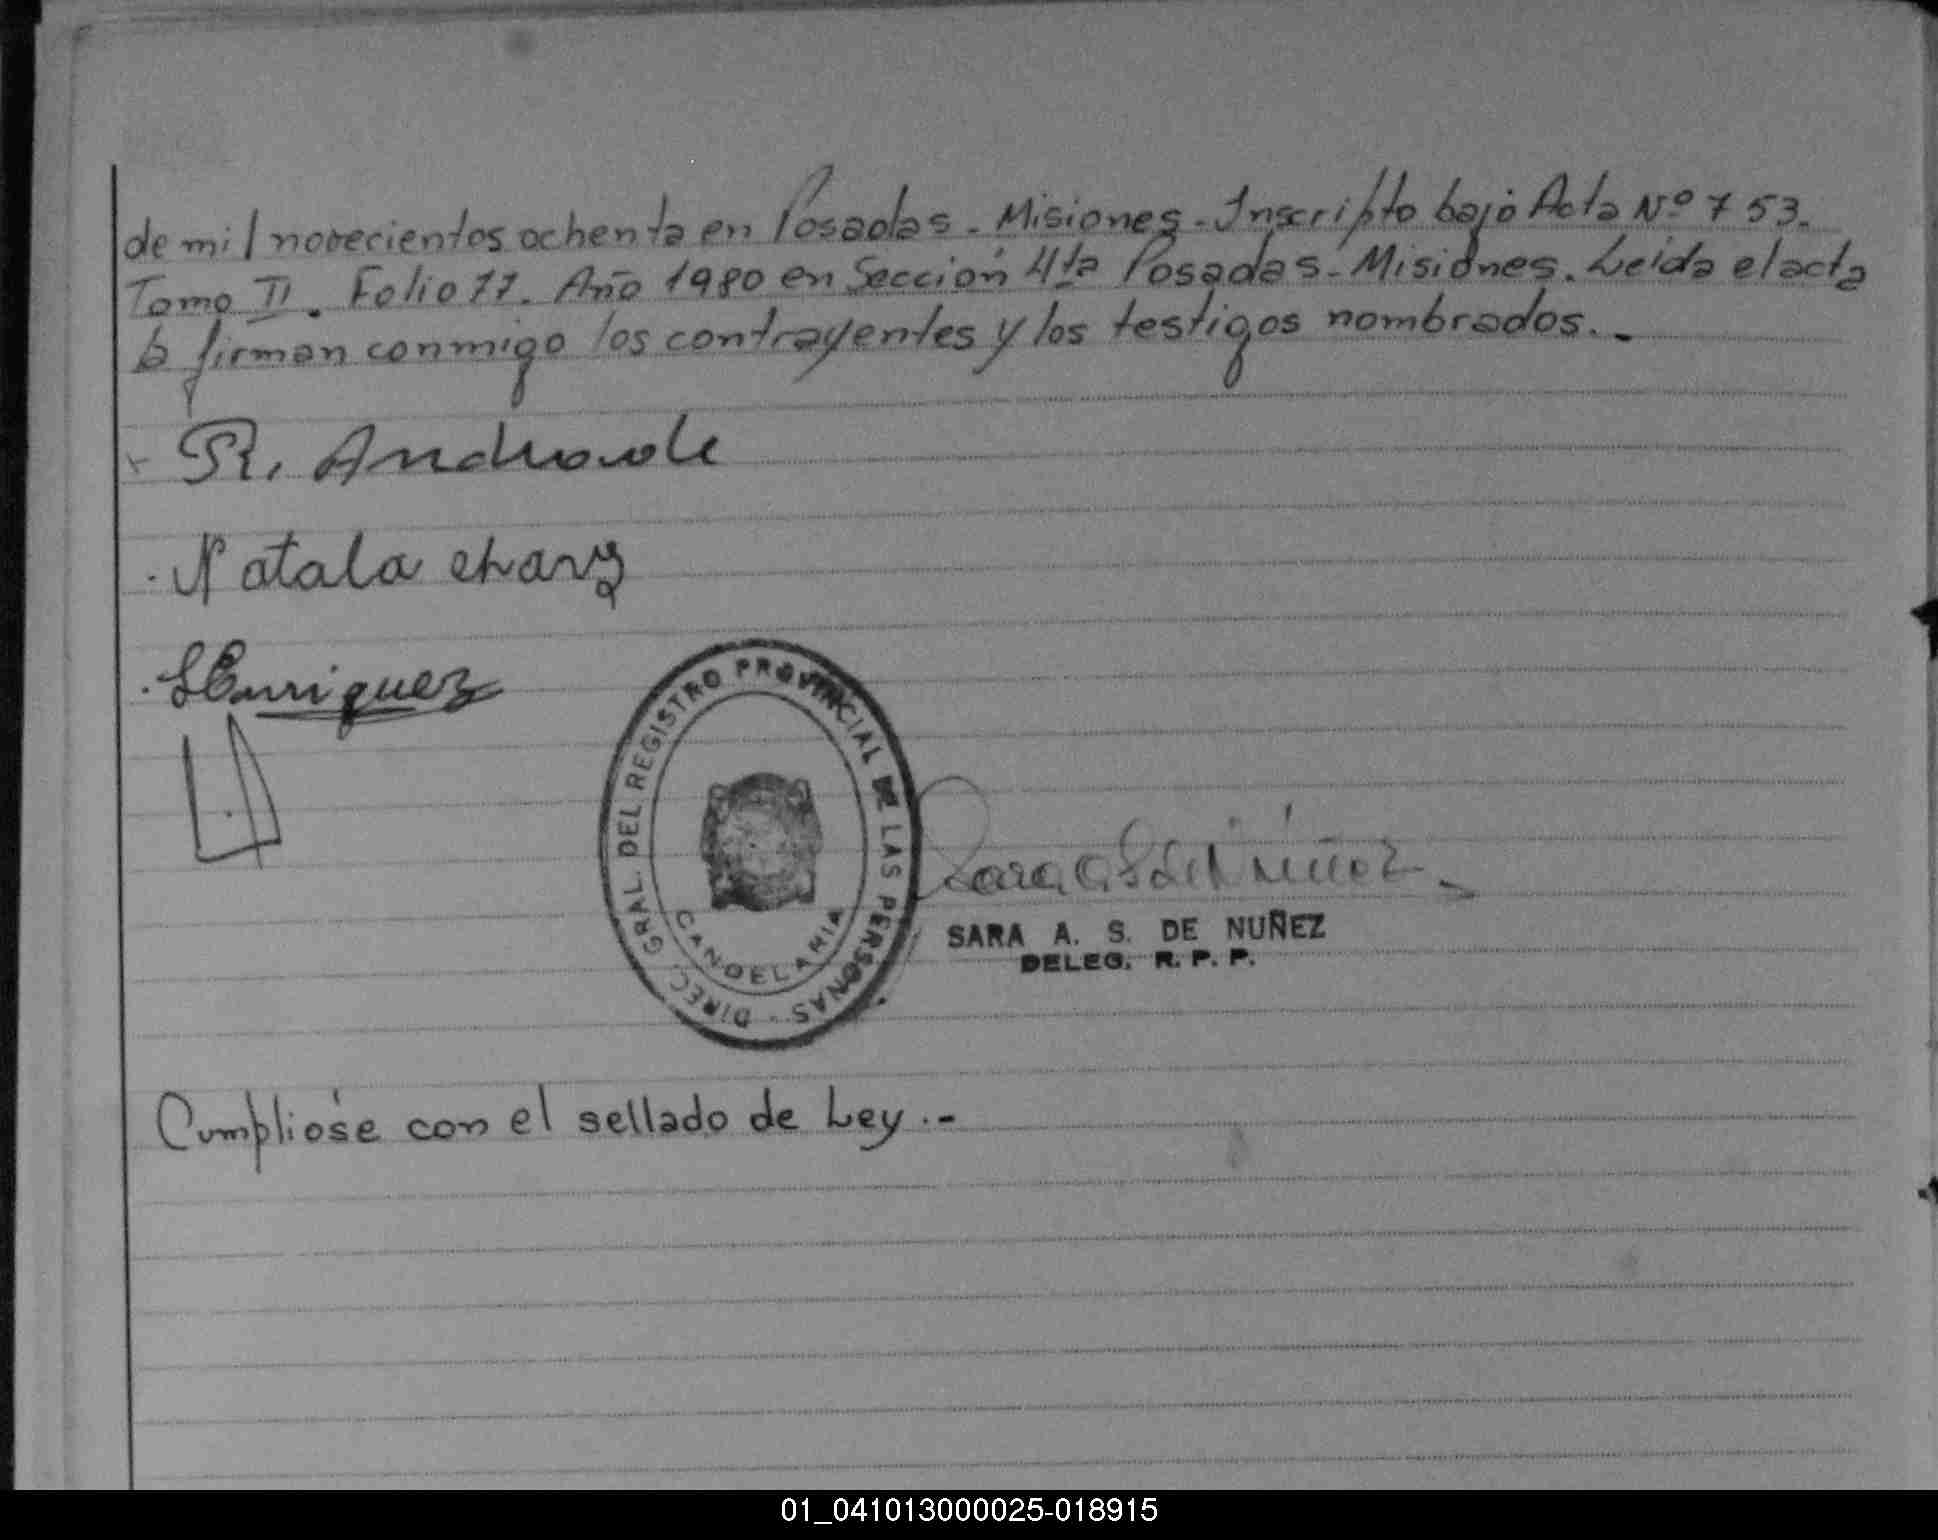 de mil novecientos ochenta en Posadas - Misiones - Inscripto bajo Acta Nº 753.
Tomo II. Folio 77. Año 1980 en Sección 4ta Posadas - Misiones. Leida el acta
la firman conmigo los contrayentes y los testigos nombrados.-
R. Andrade
Natala charz
Enriquez
DIREC. GRAL. DEL REGISTRO PROVINCIAL DE LAS PERSONAS -
CANDELARIA
Sara A S de Núñez
SARA A. S. DE NUÑEZ
DELEG. R. P. P.
Cumplióse con el sellado de Ley.-
01_041013000025-018915